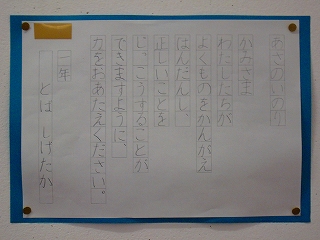 あさのいのり
かみさま
わたしたちが
よくものをかんがえ
はんだんし、
正しいことを
し、こうすることが
できますように。
力をおあたえください。
一年
とば しげたか